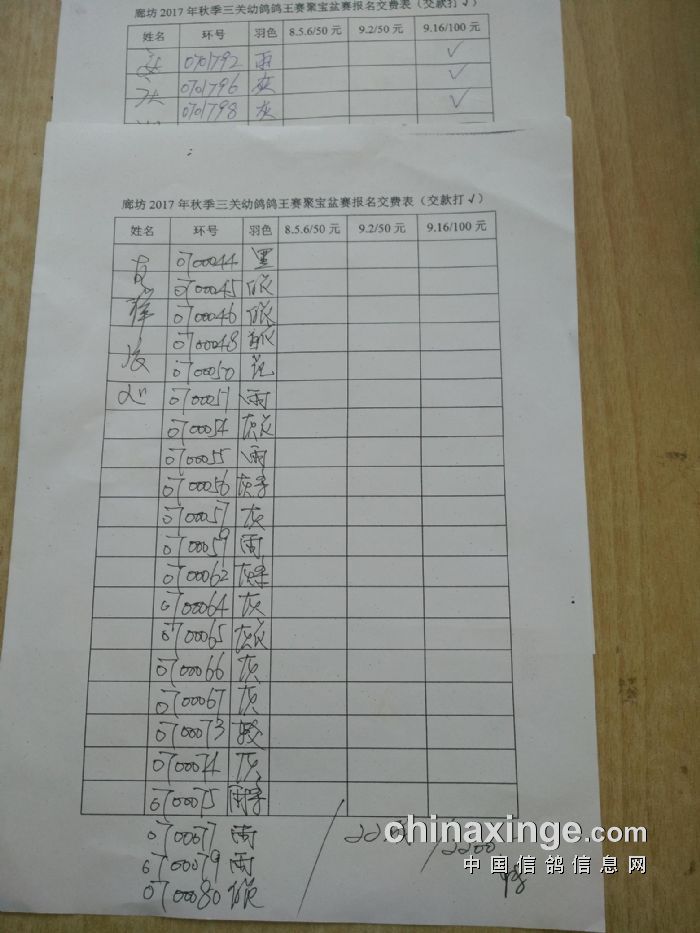 廊坊 2017 年秋季三关幼鸽鸽王赛聚宝盆赛报名交费表（交款打√）
姓名 环号 羽色 8.5.6/50 元 9.2/50 元 9.16/100 元
0701792 雨 √
0701796 灰 √
0701798 灰 √
廊坊 2017 年秋季三关幼鸽鸽王赛聚宝盆赛报名交费表（交款打√）
姓名 环号 羽色 8.5.6/50 元 9.2/50 元 9.16/100 元
0700044
0700045
0700046
0700048
0700050 花
0700051 雨
0700054 灰花
0700055 雨
0700056
0700057 灰
0700059 雨
0700062
0700064 灰
0700065
0700066 灰
0700067 灰
0700073
0700074 灰
0700075
0700077 雨
0700079 雨
0700080
2200
chinaxinge.com
中国信鸽信息网